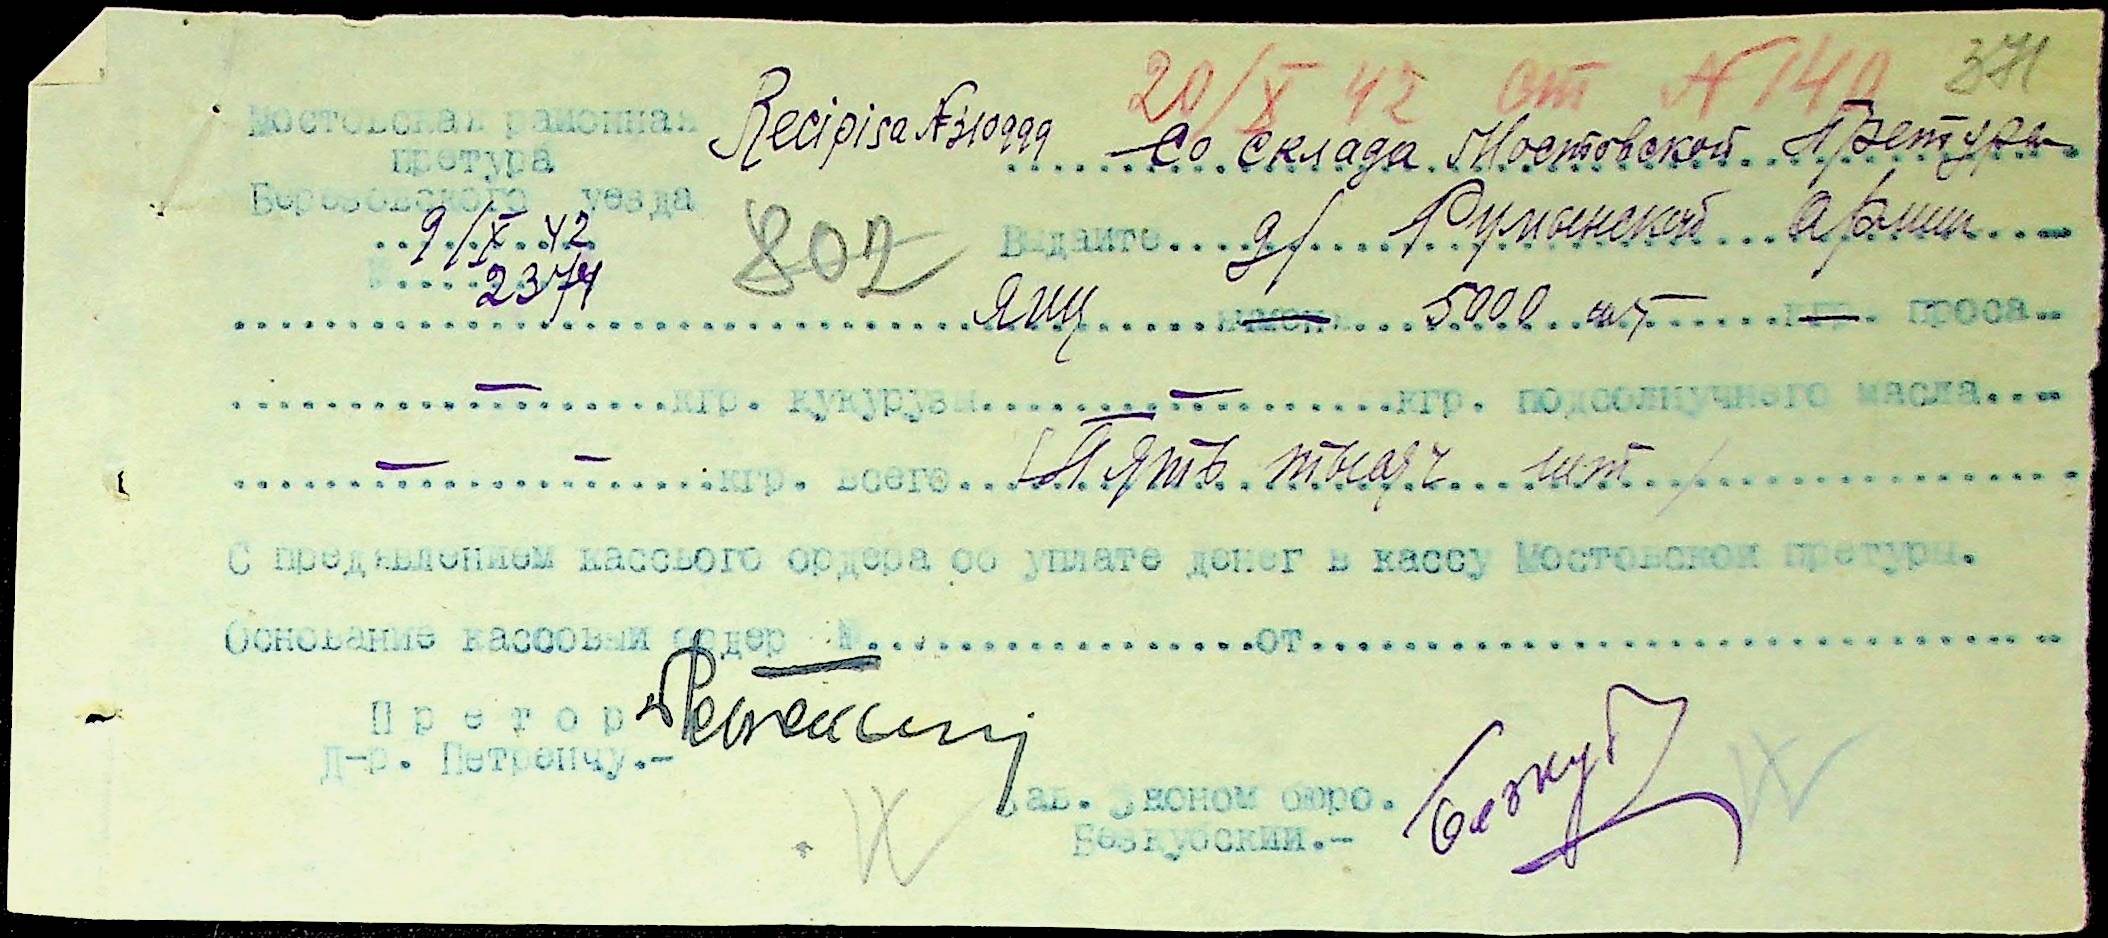 20/X 42 от №140
371
Мостовская районная
претура
Березовского уезда
9/X 42
№ 2374
Recipisa №310999
802
Со склада Мостовской Претуры
Выдайте.... д/ Румынской армии
яиц 5000 шт кгр. проса..
кгр. кукурузы.....кгр. подсолнучного масла....
кгр. всего... /Пять тысяч шт/
С предявлением кассвого ордера об уплате денег в кассу Мостовской претуры.
Основание кассовый ордер №......от......
Претор
Д-р. Петренчу.-
Зав. Эконом бюро.
Безкубский.-
Безкуб